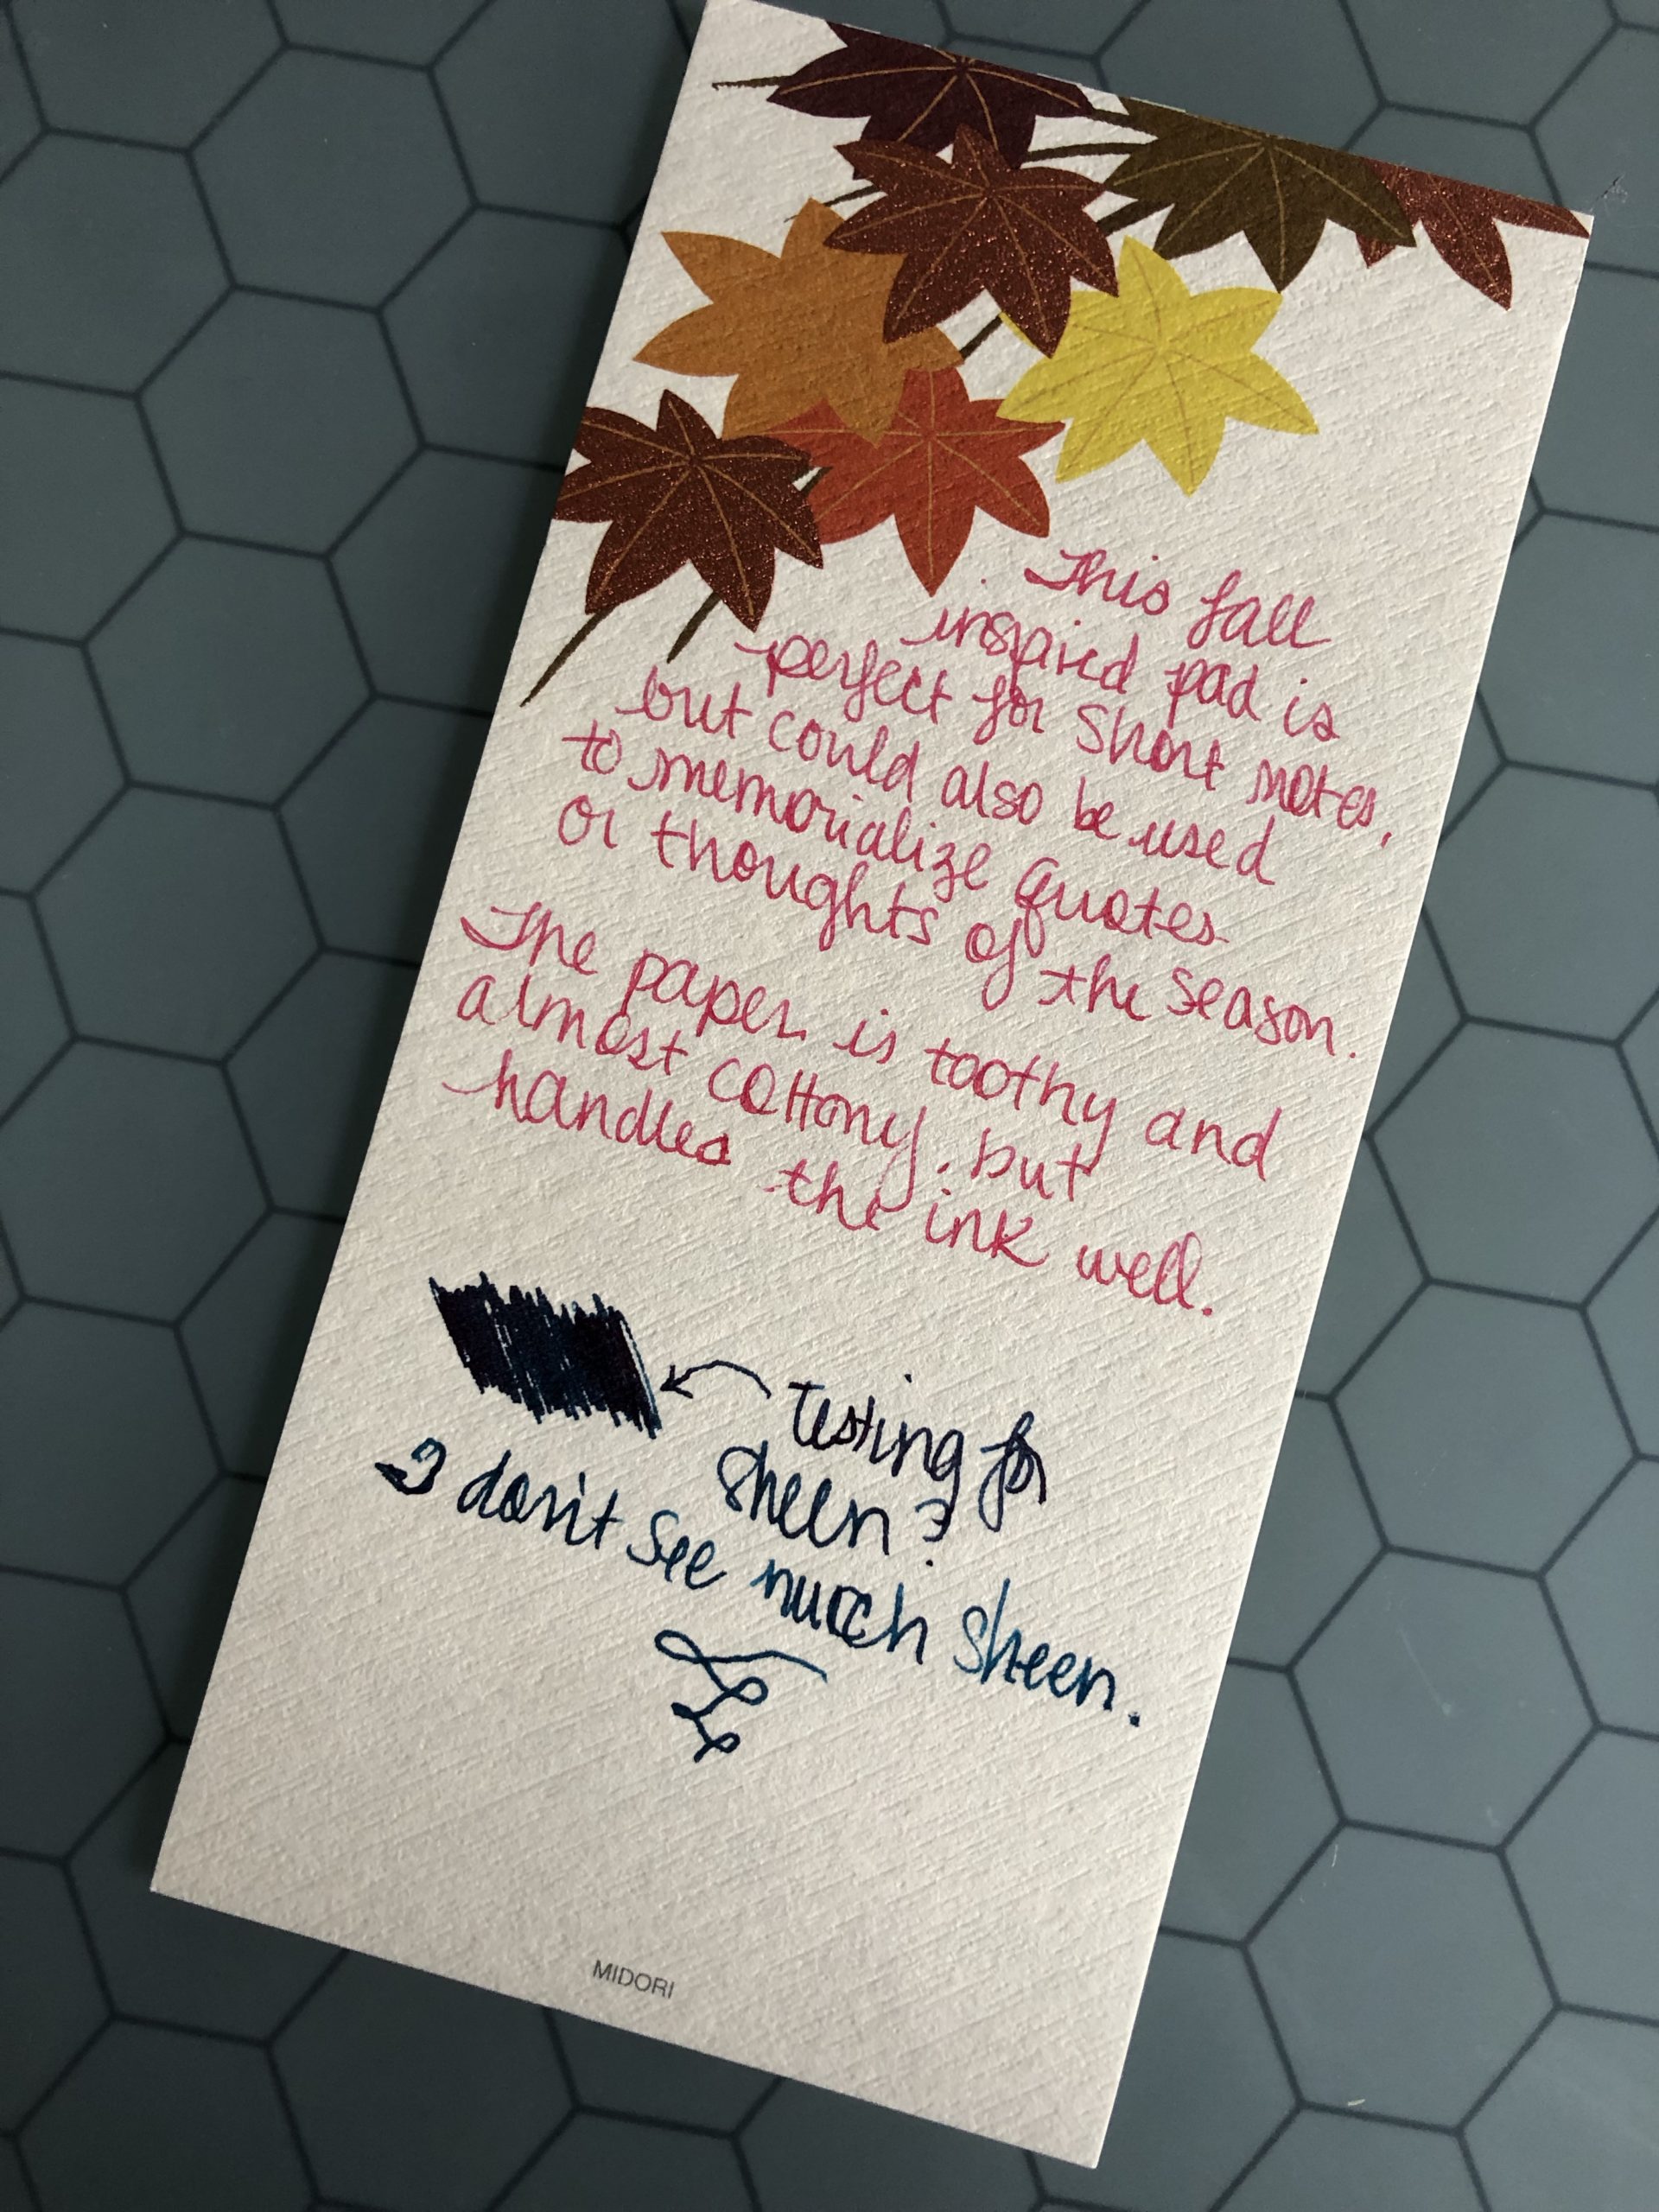 This fall
inspired pad is
perfect for short notes,
but could also be used
to memorialize quotes
or thoughts of the season.
The paper is toothy and
almost cottony, but
handles the ink well.
Testing for
sheen?
I don't see much sheen.
MIDORI